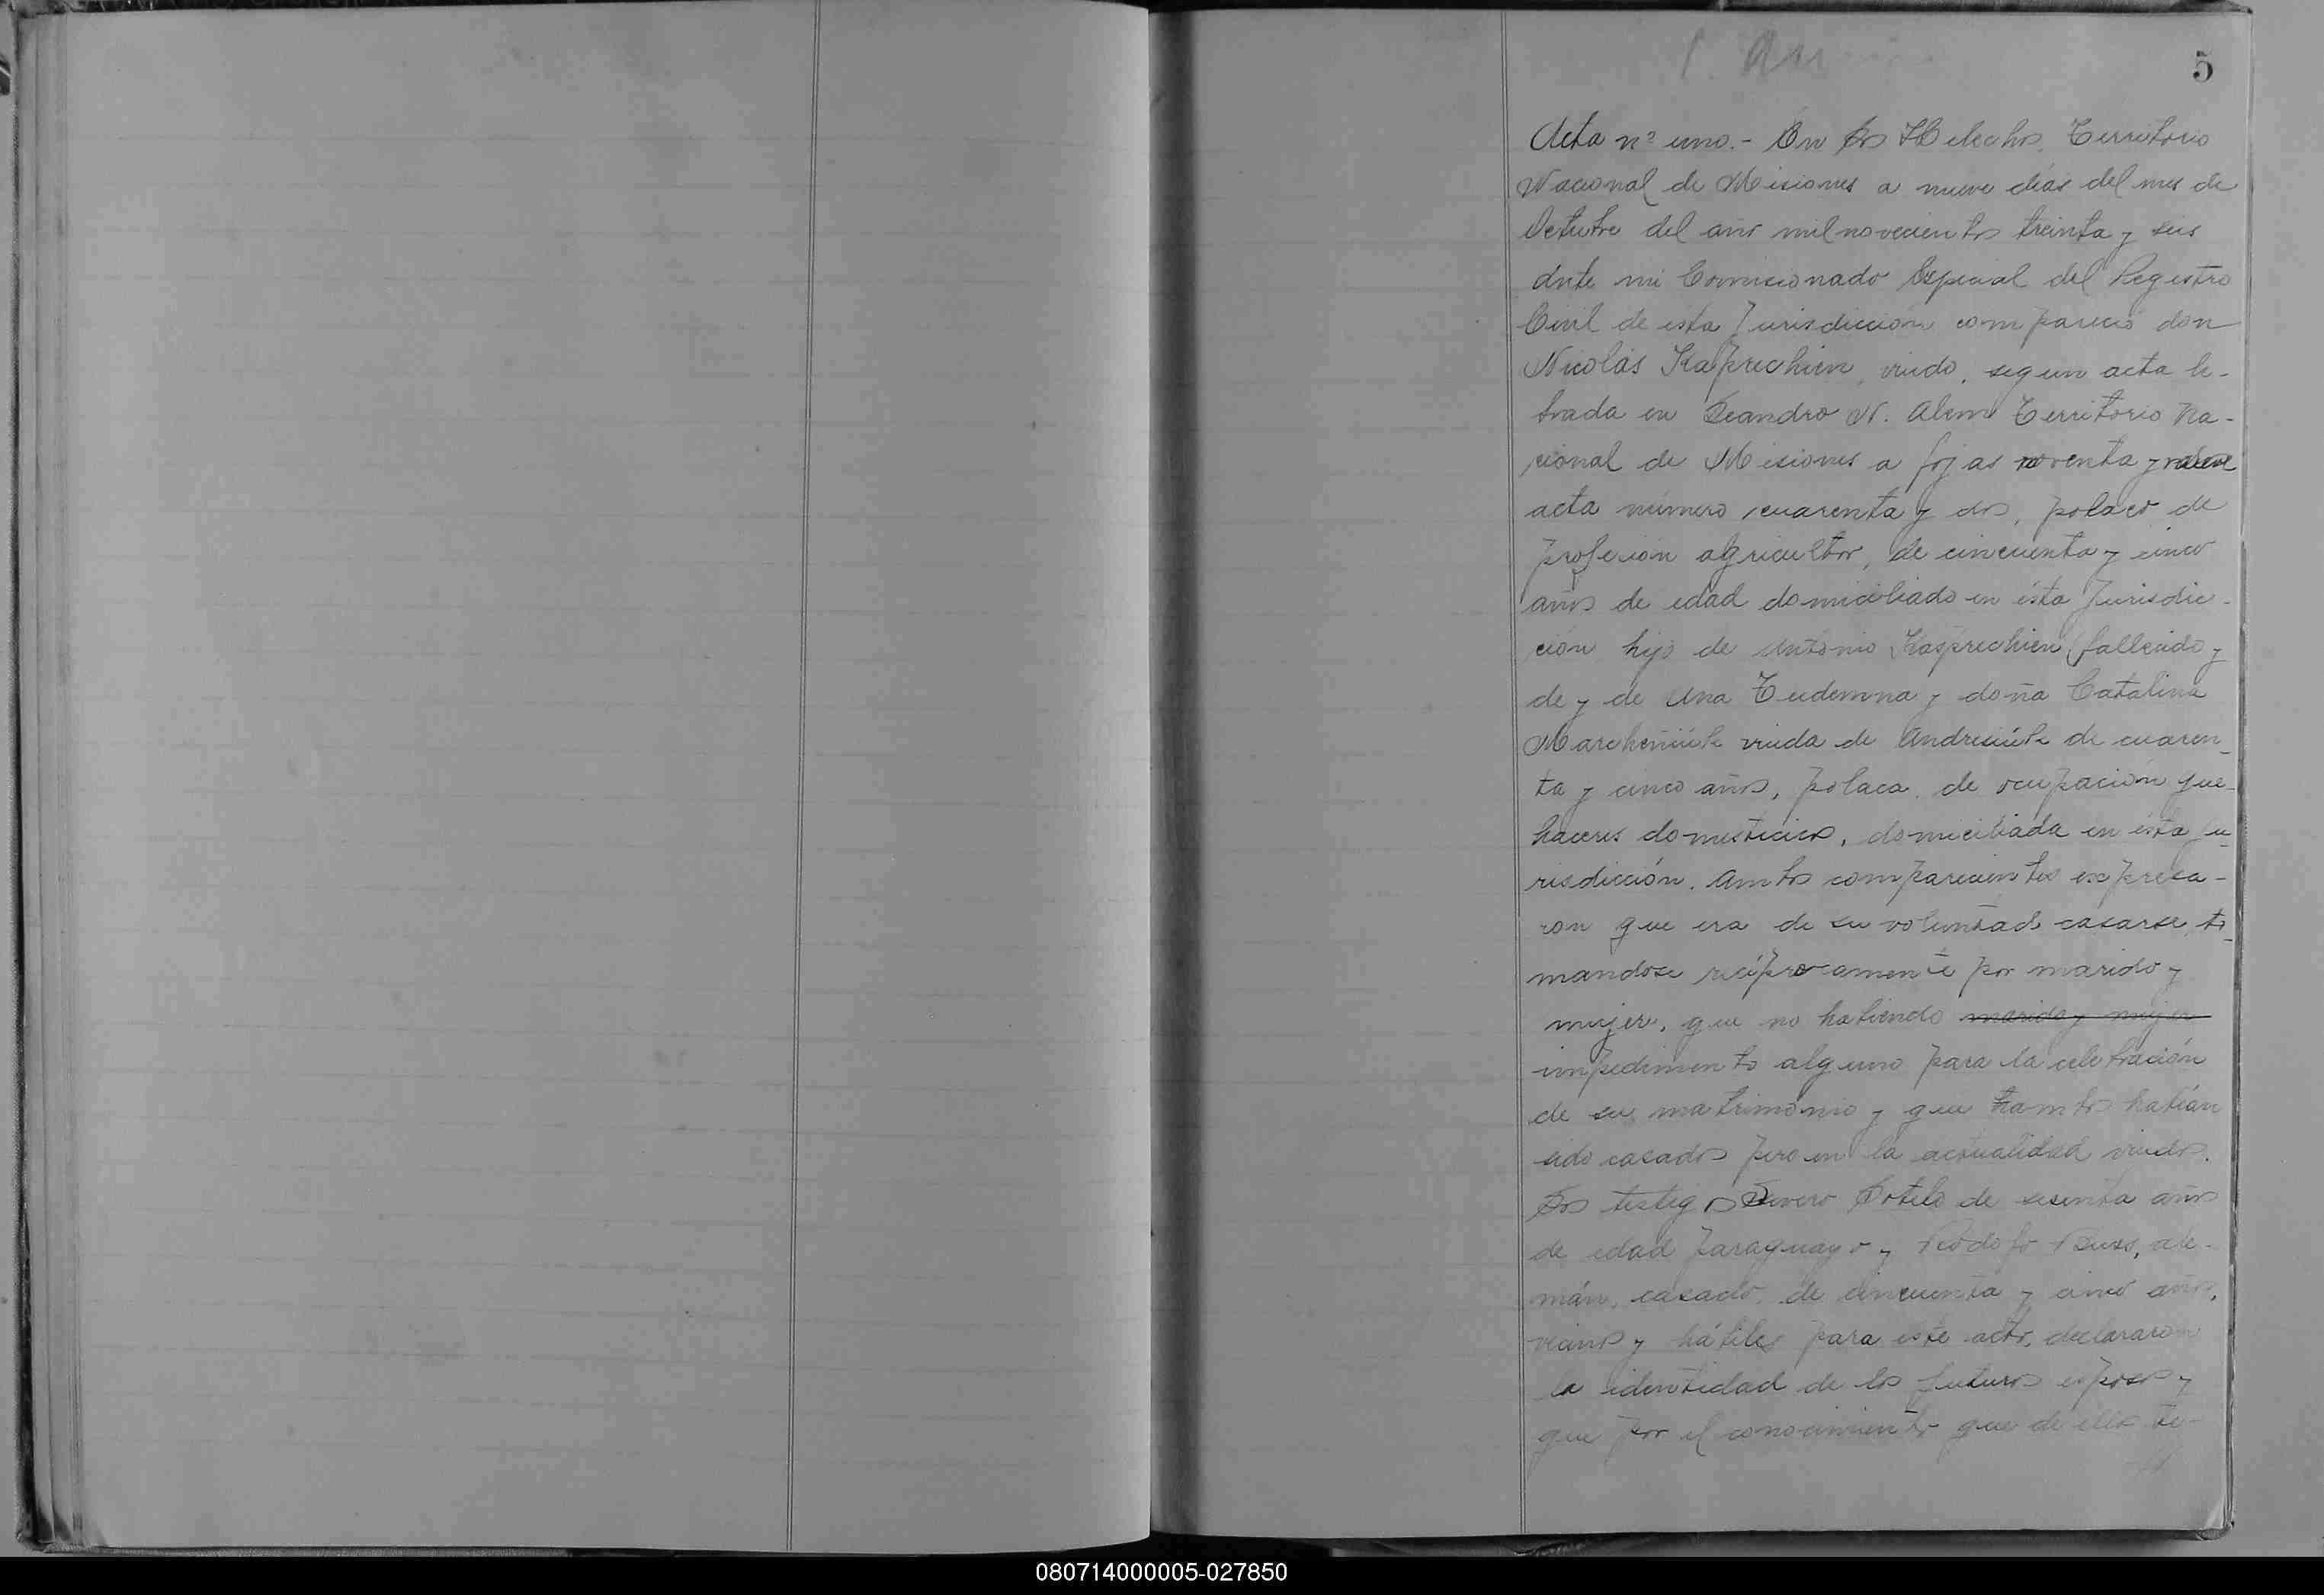 5
Acta nº uno.- En los Helechos, Territorio
Nacional de Misiones a nueve dias del mes de
Octubre del año mil novecientos treinta y seis
ante mi Comisionado Especial del Registro
Civil de esta Jurisdicción compareció don
Nicolás Kasprechien, viudo, segun acta la-
brada en Leandro N. Alem Territorio Na-
cional de Misiones a fojas noventa y nueve
acta número cuarenta y dos, polaco de
profesión agricultor, de cincuenta y cinco
años de edad domiciliado en ésta Jurisdic-
ción hijo de Antonio Kasprechien fallecido y
de y de Ana y doña Catalina
viuda de de cuaren-
ta y cinco años, polaca, de ocupación que-
haceres domesticios, domiciliada en ésta Ju-
risdicción. Ambos comparecientes expresa-
ron que era de su voluntad casarse to-
mandose reciprocamente por marido y
mujer, que no habiendo marido y mujer
impedimento alguno para la celebración
de su matrimonio y que ambos habian
sido casados pero en la actualidad viudos.
Los testigos Severo Sotelo de sesenta años
de edad paraguayo y Rodofo ale-
mán, casado, de cincuenta y cinco años,
vecinos y hábiles para este acto, declararon
la identidad de los futuros esposos y
que por el conocimiento que de ellos te-
080714000005-027850